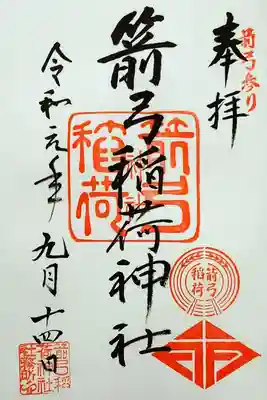 箭弓参り
奉拝
箭弓稲荷神社
箭弓稲荷
箭弓稲荷
令和元年 九月 十四日